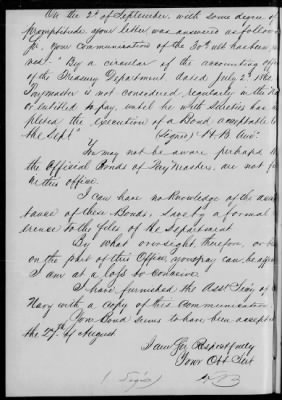 On the 2d of September, with some degree of
promptitude your letter was answered as follows
Sir, your communication of the 30th ult has been
"By a circular of the accounting
of the Treasury Department dated July 2d
Paymaster is not considered regularly in the
or entitled to pay, until he with Sureties has
pleted the execution of a Bond acceptable to
the Dept" (Signed)
You may not be aware perhaps
the Official Bonds of Paymasters, are not
in this office
I can have no knowledge of the
tance of these Bonds, save by a formal
to the files of the Department
By what oversight, therefore, or
on the part of this Office, your pay can be
I am at a loss to conceive
I have furnished the Asst Secy of
Navy with a copy of this Communication.
Your Bond seems to have been accepted
the 27th of August
I am Sir Respectfully
Your Obt Svt
(Signed)